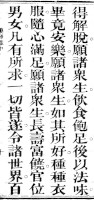 得解脫願諸衆生飲食飽足後以法味
畢竟安樂願諸衆生如其所好種種衣
服隨心滿足願諸衆生長壽富饒官位
男女凡有所求一切皆遂令諸世界百